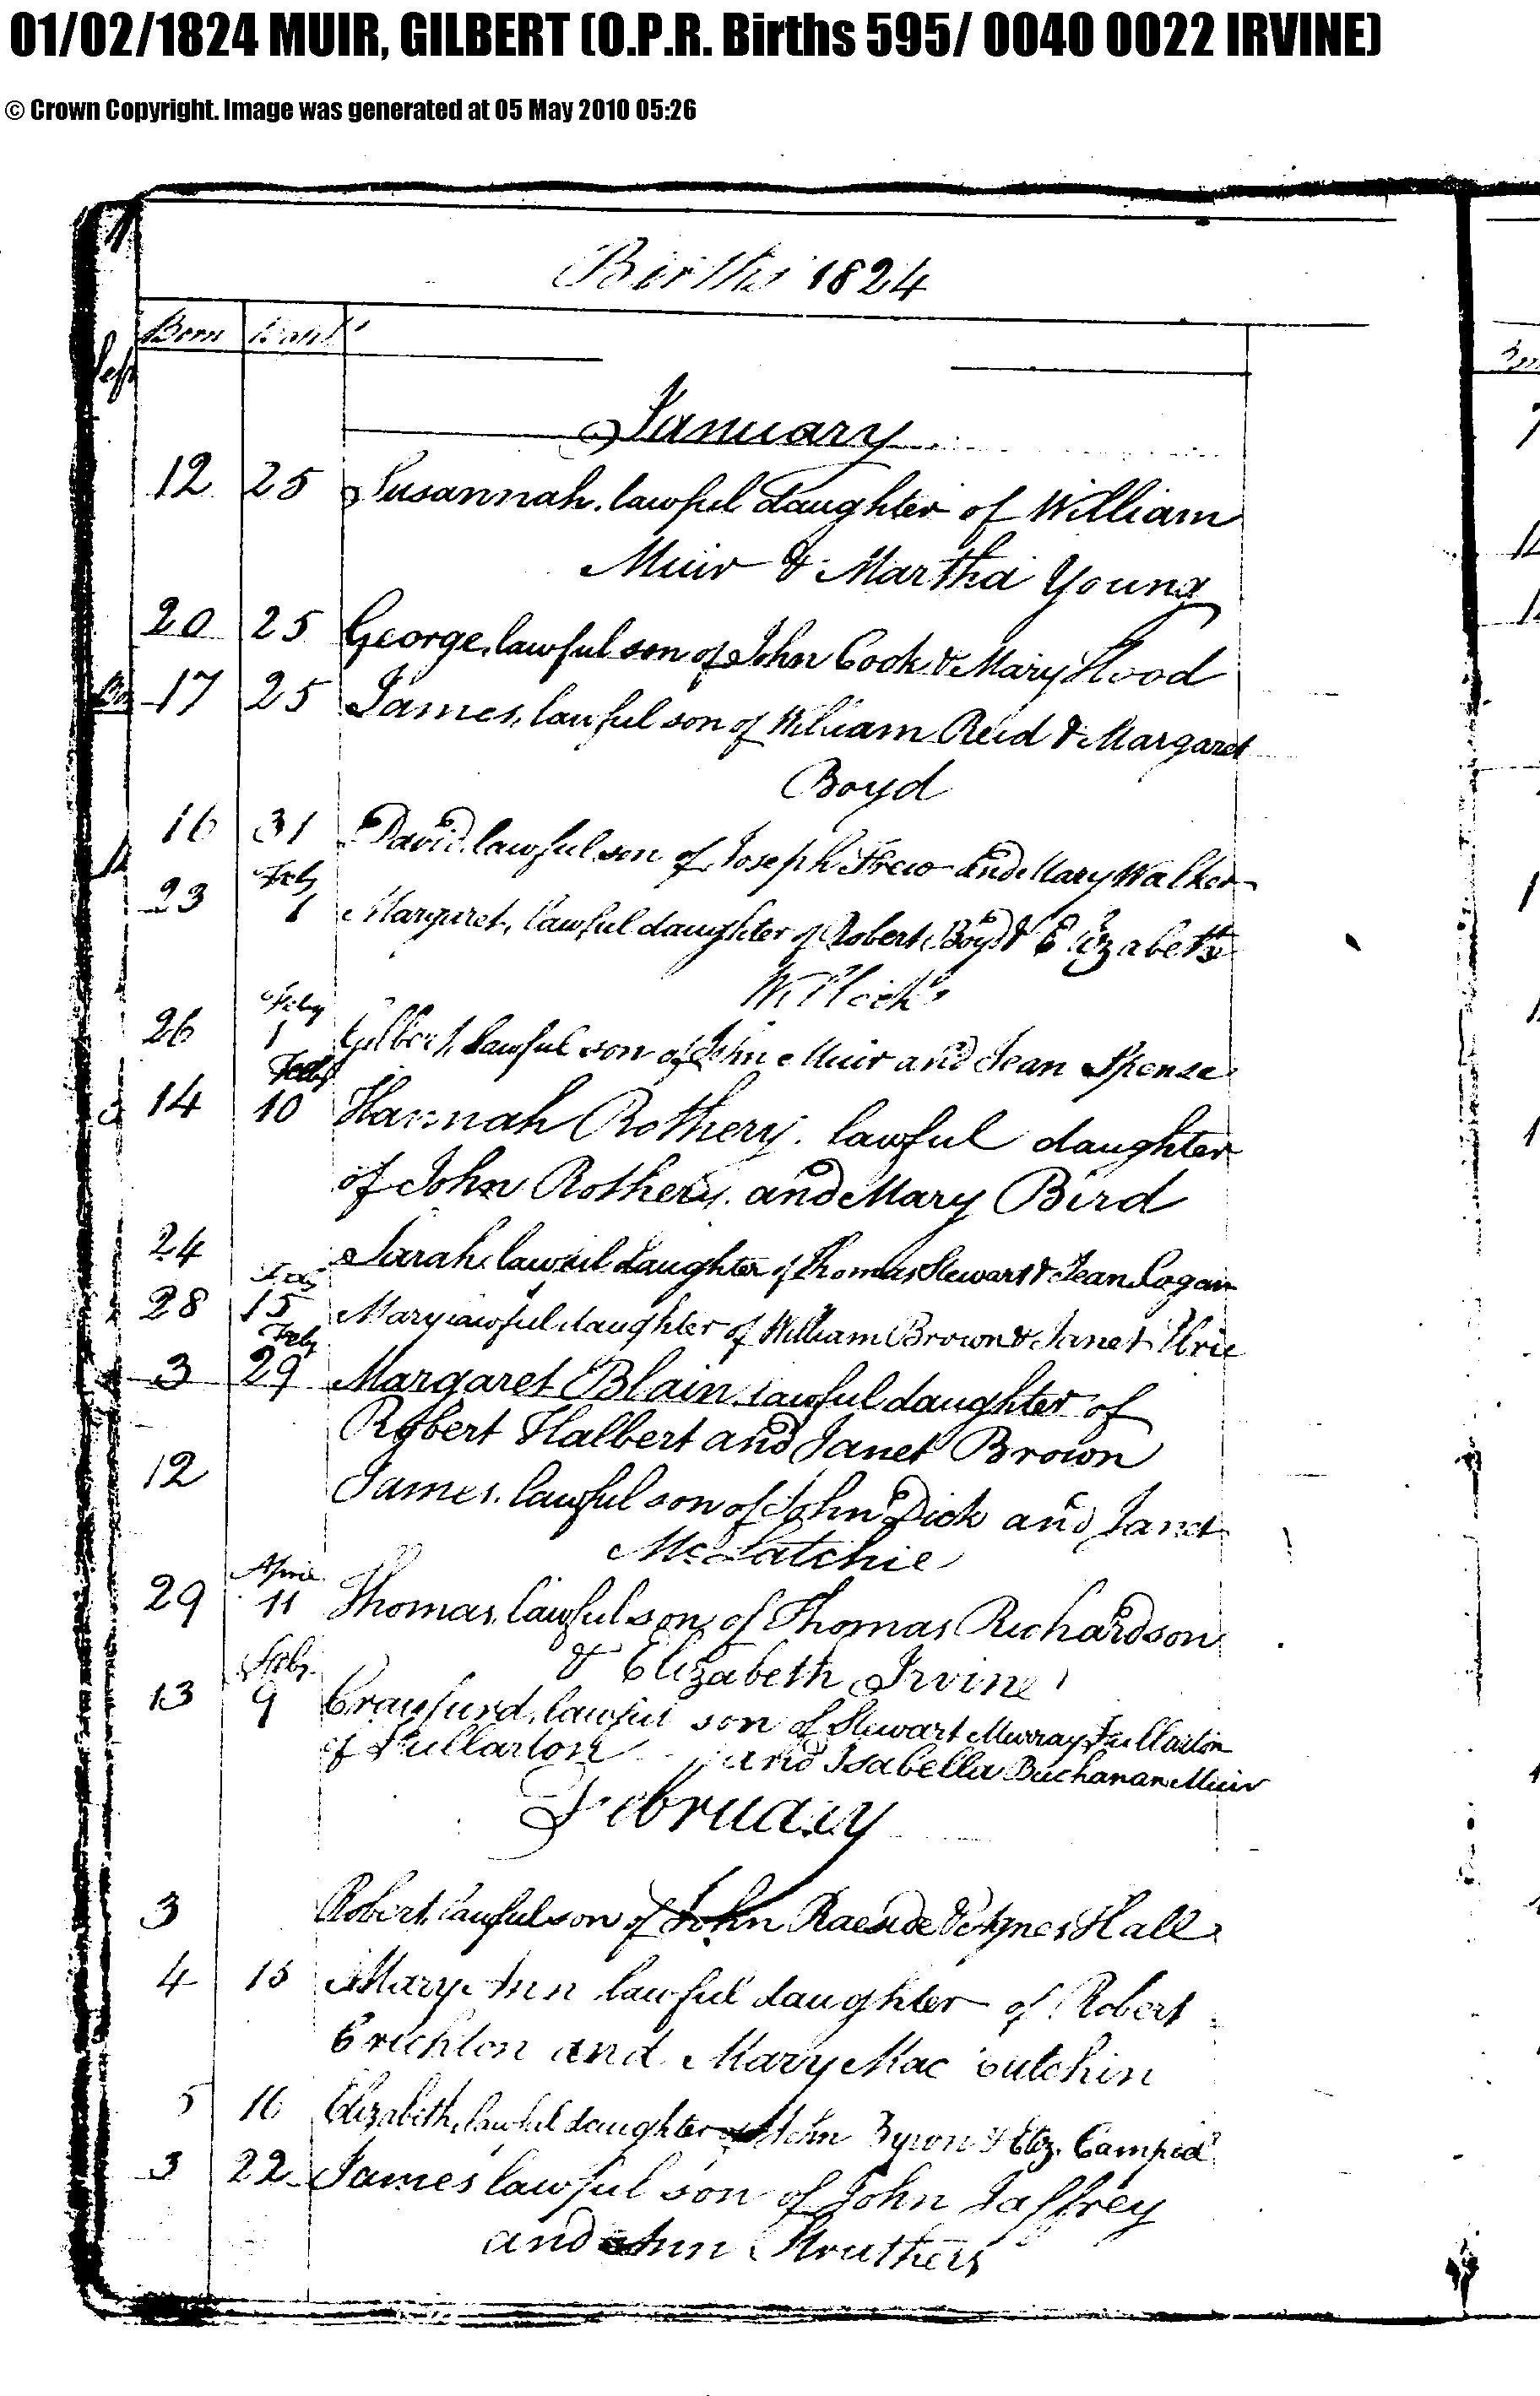 01/02/1824 MUIR, GILBERT (O.P.R. Births 595/ 0040 0022 IRVINE)
© Crown Copyright. Image was generated at 05 May 2010 05:26
Births 1824
Born Bapt
January
12 25 Susannah, lawful daughter of William
Muir & Martha Young
20 25 George, lawful son of John Cook & Mary Hood
17 25 James, lawful son of William Reid & Margaret
Boyd
16 31 David lawful son of Joseph Frew and Mary Walker
Feby
23 1 Margaret, lawful daughter of Robert Boyd & Elizabeth
Willock
Feby
26 1 Gilbert, lawful son of John Muir and Jean Spense
Feby
14 10 Hannah Rothery, lawful daughter
of John Rothery and Mary Bird
24 Sarah, lawful daughter of Thomas Stewart & Jean Logan
Feby
28 15 Mary lawful daughter of William Brown & Janet Urie
Feby
3 29 Margaret Blain, lawful daughter of
Robert Halbert and Janet Brown
12 James, lawful son of John Dick and Janet
McLatchie
April
29 11 Thomas, lawful son of Thomas Richardson
& Elizabeth Irvine
Feby
13 9 Craufurd, lawful son of Stewart Murray Fullarton
of Fullarton and Isabella Buchanan Muir
February
3 Robert, lawful son of John Raeside & Agnes Hall
4 15 Mary Ann lawful daughter of Robert
Crichton and Mary Mac Cutchin
5 16 Elizabeth, lawful daughter of John Byron & Eliz.
3 22 James lawful son of John Jaffrey
and Ann Struthers